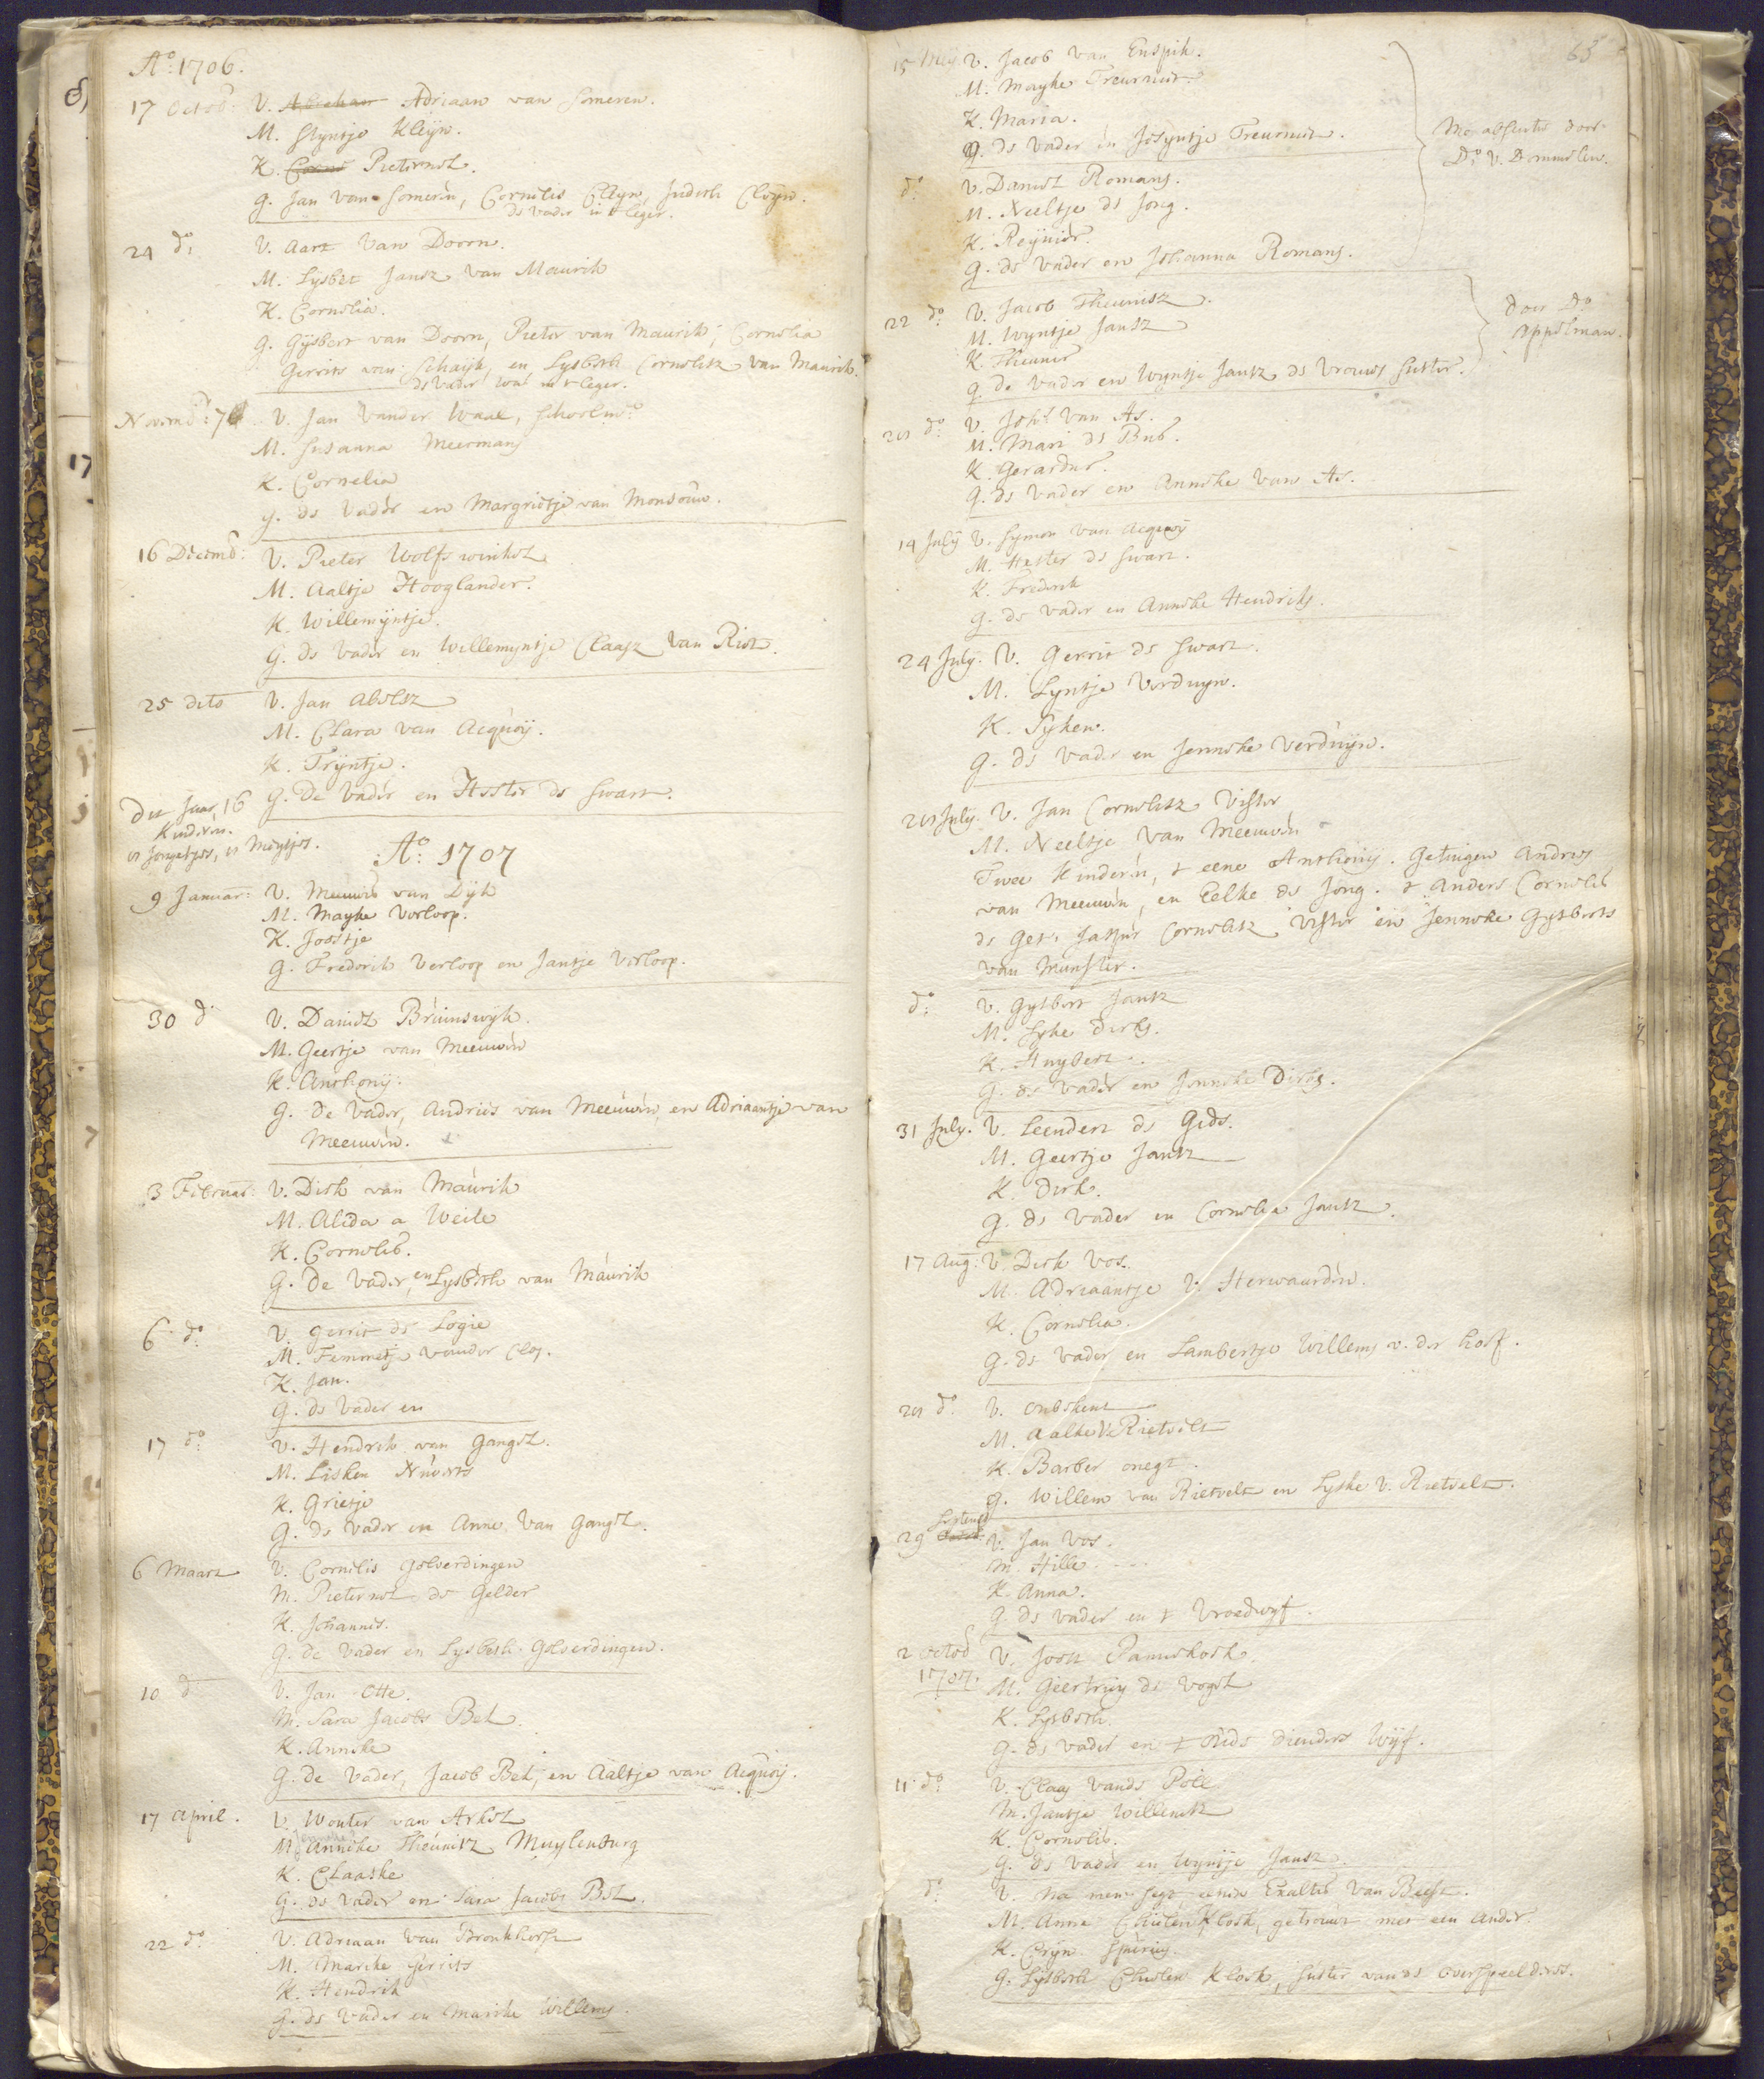 Ao: 1706.
17 Octob: V. Adriaan van Someren.
M. Styntje Kleyn.
K. Pieternel.
G. Jan van Someren, Cornelis Cleyn, Cleyn.
de vader in 't leger.
24 do: V. Aart van Doorn.
M. Lysbet Jansz van Maurik
K. Cornelia.
G. Gysbert van Doorn, Pieter van Maurik, Cornelia
Gerrits van Schaijk, en Lysbeth Cornelisz van Maurik.
de vader was in 't leger.
Novemb: 7 V. Jan vander Waal, Schoolmr
M. Susanna Meermans
K. Cornelia
G. de vader en Margrietje van Monsouw.
16 Decemb: V. Pieter Wolfswinkel
M. Aaltje Hooglander.
K. Willemijntje.
G. de vader en Willemyntje Claasz van Riet.
25 dito V. Jan Abelsz
M. Clara van Acquoij.
K. Tryntje.
G. De vader en Hester de Swart.
Dit Jaar 16
Kinderen.
8 Jongetjes, 8 Meysjes.
Ao: 1707
9 Januar: V. Meeuwis van Dijk
M. Mayke Verloop.
K. Joostje
G. Frederik Verloop en Jantje Verloop.
30 do V. Daniel Bruinswyk.
M. Geertje van Meeuwen
K. Anthonij.
G. De Vader, Andries van Meeuwen, en Adriaantje van
Meeuwen.
3 Februar: V. Dirk van Maurik
M. Alida a Weile
K. Cornelis.
G. De Vader, en Lysbeth van Maurik
6 do: V. Gerrit de Logie
M. Femmetje vander Clos.
K. Jan.
G. de Vader en
17 do: V. Hendrik van Gangel.
M. Lisken
K. Grietje
G. de Vader en Anne van Gangel.
6 Maart V. Cornelis Golverdingen
M. Pieternel de Gelder
K. Johannes.
G. de Vader en Lysbeth Golverdingen.
10 do V. Jan Otte.
M. Sara Jacobs Bel.
K. Anneke
G. de Vader, Jacob Bel, en Aaltje van Acquoij.
17 April. V. Wouter van Arkel
M. Anneke Theunisz Muylenburg
K. Claaske
G. de Vader en Sara Jacobs Bel.
22 do: V. Adriaan van Bronkhorst
M. Marike Gerrits
K. Hendrik
G. de Vader en Marike Willems.
63
15 Mey. V. Jacob van Enspik.
M. Mayke Treurniet.
K. Maria.
G. de Vader en Josyntje Treurniet.
do: V. Daniel Romans.
M. Neeltje de Jong.
K. Reynier.
G. de Vader en Johanna Romans.
Me absente door
Do: v. Demmelen.
22 do: V. Jacob Theunisz.
M. Wyntje Jansz
K. Theunis
G. de Vader en Wyntje Jansz de vrouws suster.
door Do
Appelman.
28 do: V. Joh: van As.
M. Mari de Bub.
K. Gerardus.
G. de Vader en Anneke van As.
14 July V. Symon van Acquoy
M. Hester de Swart.
K. Frederik
G. de Vader en Anneke Hendriks.
24 July. V. Gerrit de Swart.
M. Lyntje Verduyn.
K. Syken.
G. de Vader en Jenneke Verduyn.
28 July. V. Jan Cornelisz Visser
M. Neeltje van Meeuwen
Twee Kinderen, 't eene Anthonij. Getuigen Andries
van Meeuwen, en Eelke de Jong. 't Anders Cornelis
de get: Jasper Cornelisz Visser en Jenneke Gysberts
van Munster.
do: V. Gysbert Jansz
M. Syke Dirks.
K. Huybert.
G. de Vader en Jenneke Dirks.
31 July. V. Leendert de Gids.
M. Geertje Jansz
K. Dirk.
G. de Vader en Cornelia Jansz.
17 Aug: V. Dirk Vos.
M. Adriaantje v. Herwaarden.
K. Cornelia.
G. de Vader en Lambertje Willems v. der Hoef.
28 do: V. Onbekent
M. Aalke v. Rietvelt
K. Barber onegt.
G. Willem van Rietvelt en Lyske v. Rietvelt.
29 Septemb V. Jan Vos.
M. Hille
K. Anna.
G. de Vader en 't Vroedwyf.
2 Octob 1707. V. Joost Pannekoek.
M. Geertruy de Vogel
K. Lysbeth.
G. de Vader en 't dienders Wyf.
11 do: V. Claas vande Poll.
M. Jantje Willemsz
K. Cornelis.
G. de Vader en Wyntje Jansz.
do: V. Na men segt eenen Exaltus van Beest.
M. Anna Clusten Klock, getrouwt met een ander.
K. Cryn. Spurius.
G. Lysbeth Clusten Klock, suster van de overspeelderes.